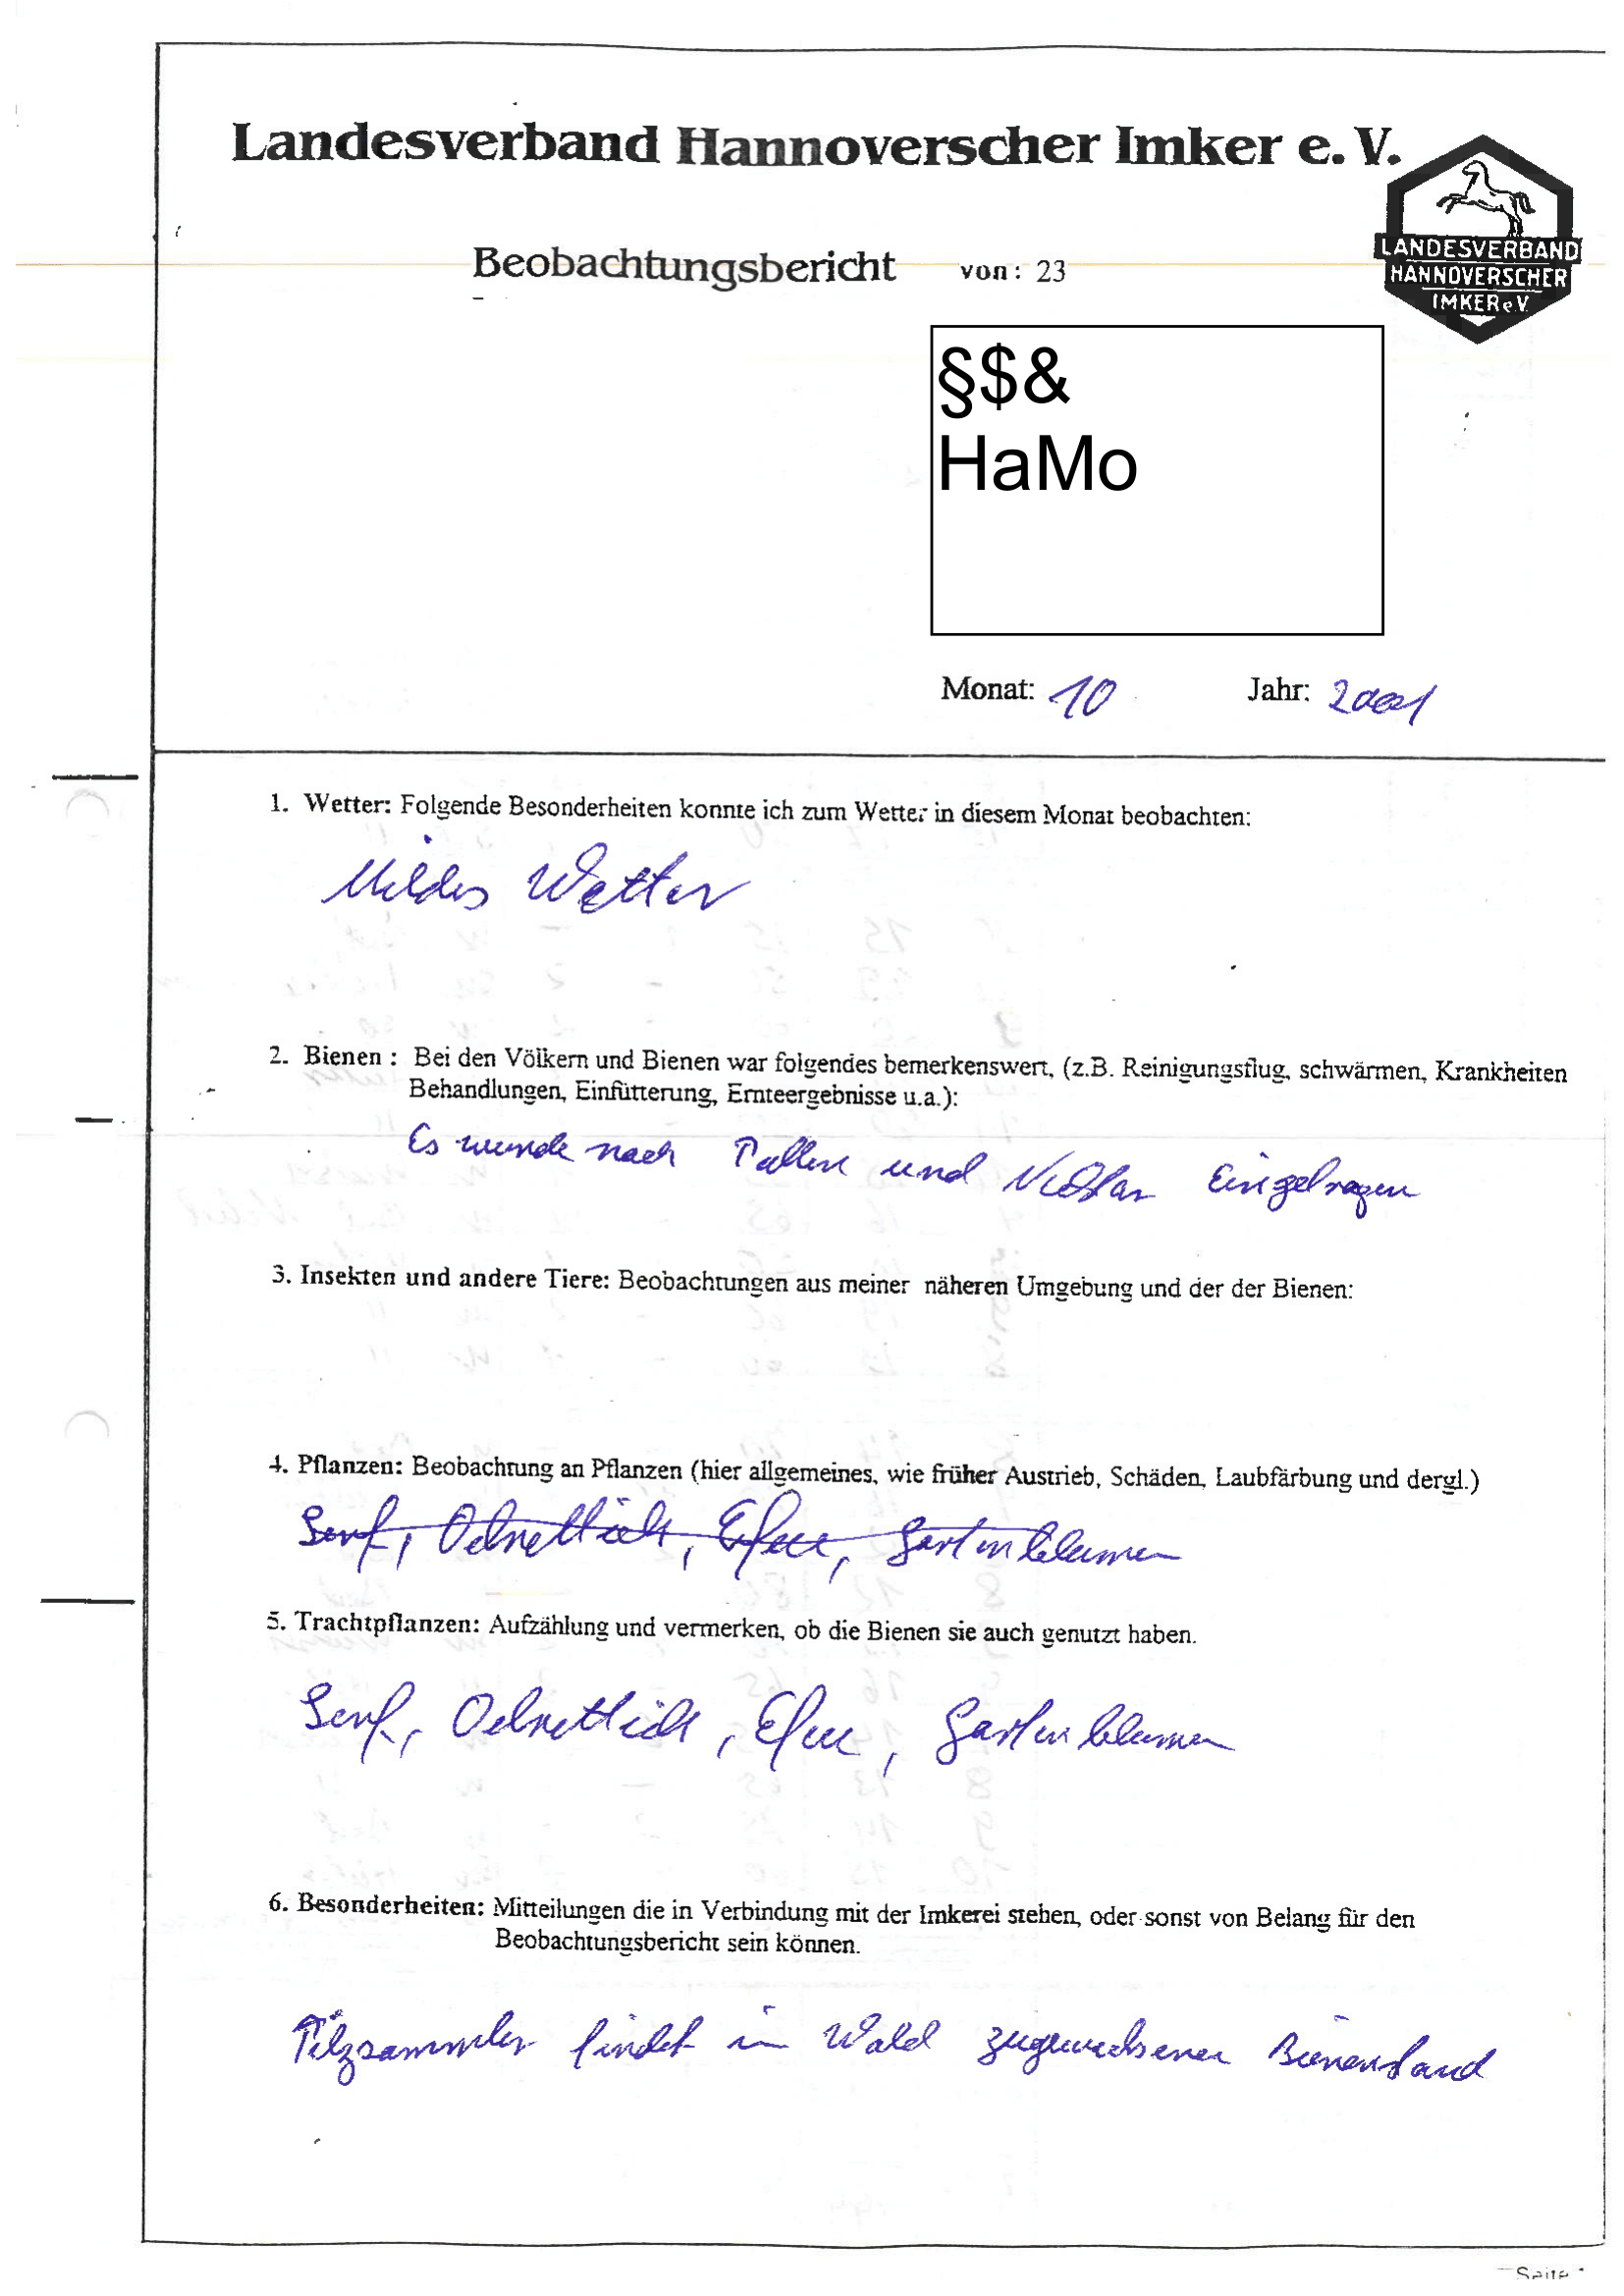 Landesverband Hannoverscher Imker e. V.
LANDESVERBAND
HANNOVERSCHER
IMKER e.V.
Beobachtungsbericht von: 23
§$&
HaMo
Monat: 10 Jahr: 2001
1. Wetter: Folgende Besonderheiten konnte ich zum Wetter in diesem Monat beobachten:
Mildes Wetter
2. Bienen : Bei den Völkern und Bienen war folgendes bemerkenswert, (z.B. Reinigungsflug, schwärmen, Krankheiten
Behandlungen, Einfütterung, Ernteergebnisse u.a.):
Es wurde noch Pollen und Nektar eingetragen
3. Insekten und andere Tiere: Beobachtungen aus meiner näheren Umgebung und der der Bienen:
4. Pflanzen: Beobachtung an Pflanzen (hier allgemeines, wie früher Austrieb, Schäden, Laubfärbung und dergl.)
Senf, Oelrettich, Efeu, Gartenblumen
5. Trachtpflanzen: Aufzählung und vermerken, ob die Bienen sie auch genutzt haben.
Senf, Oelrettich, Efeu, Gartenblumen
6. Besonderheiten: Mitteilungen die in Verbindung mit der Imkerei stehen, oder sonst von Belang für den
Beobachtungsbericht sein können.
Pilzsammler findet im Wald zugewachsenen Bienenstand
Seite